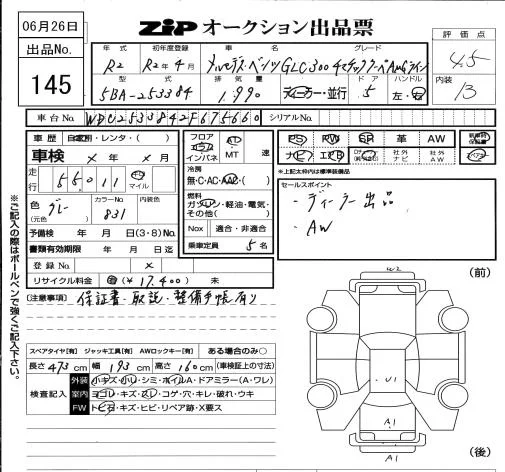 06月26日
ZIP オークション出品票
評価点
4.5
出品No.
145
年式 初年度登録 車名 グレード
R2 R2年4月 メルセデス・ベンツ GLC300 4マチッククーペ AMGライン
内装
B
型式 排気量 ドア ハンドル
5BA-253384 1,990 ディーラー・並行 5 左・右
車台No. WDC2533842F675660 シリアルNo.
車歴 自家用・レンタ・( )
車検 × 年 × 月
走行 55,011 キロ マイル
色 グレー (元色)
カラーNo. 831
内装色
予備検 年 月 日(3・8)No.
書類有効期限 年 月 日迄
登録No. ×
リサイクル料金 済(¥17,400) 未
フロア コラム インパネ AT・MT 速
冷房 無・C・AC・AAC・( )
燃料 ガソリン・軽油・電気・その他( )
Nox 適合・非適合
乗車定員 5名
PS PW SR 革 AW 新車時保証書
ナビ エアB 社外ナビ 社外AW
*上記太枠内は標準装備品
セールスポイント
・ディーラー出品
・AW
[注意事項] 保証書・取説・整備手帳有り
スペアタイヤ[有] ジャッキ工具[有] AWロックキー[有] ある場合のみ○
長さ473cm 幅193cm 高さ160cm (車検証上の寸法)
検査記入
外装 小キズ・小凹・シミ・ホイルA・ドアミラー(A・ワレ)
室内 ヨゴレ・キズ・スレ・コゲ・穴・キレ・破れ・ウキ
FW トビ石・キズ・ヒビ・リペア跡・X要ス
(前)
W2
U1
A1
A1
(後)
※ご記入の際はボールペンで強くご記入下さい。